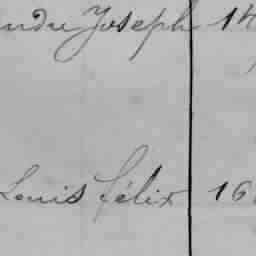 andre Joseph 14
Louis félix 16